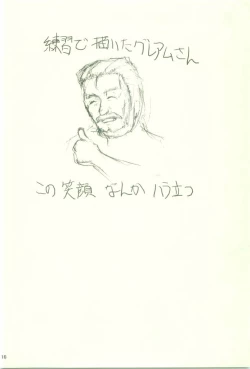 練習で描いたグレアムさん
この笑顔なんかハラ立つ
16